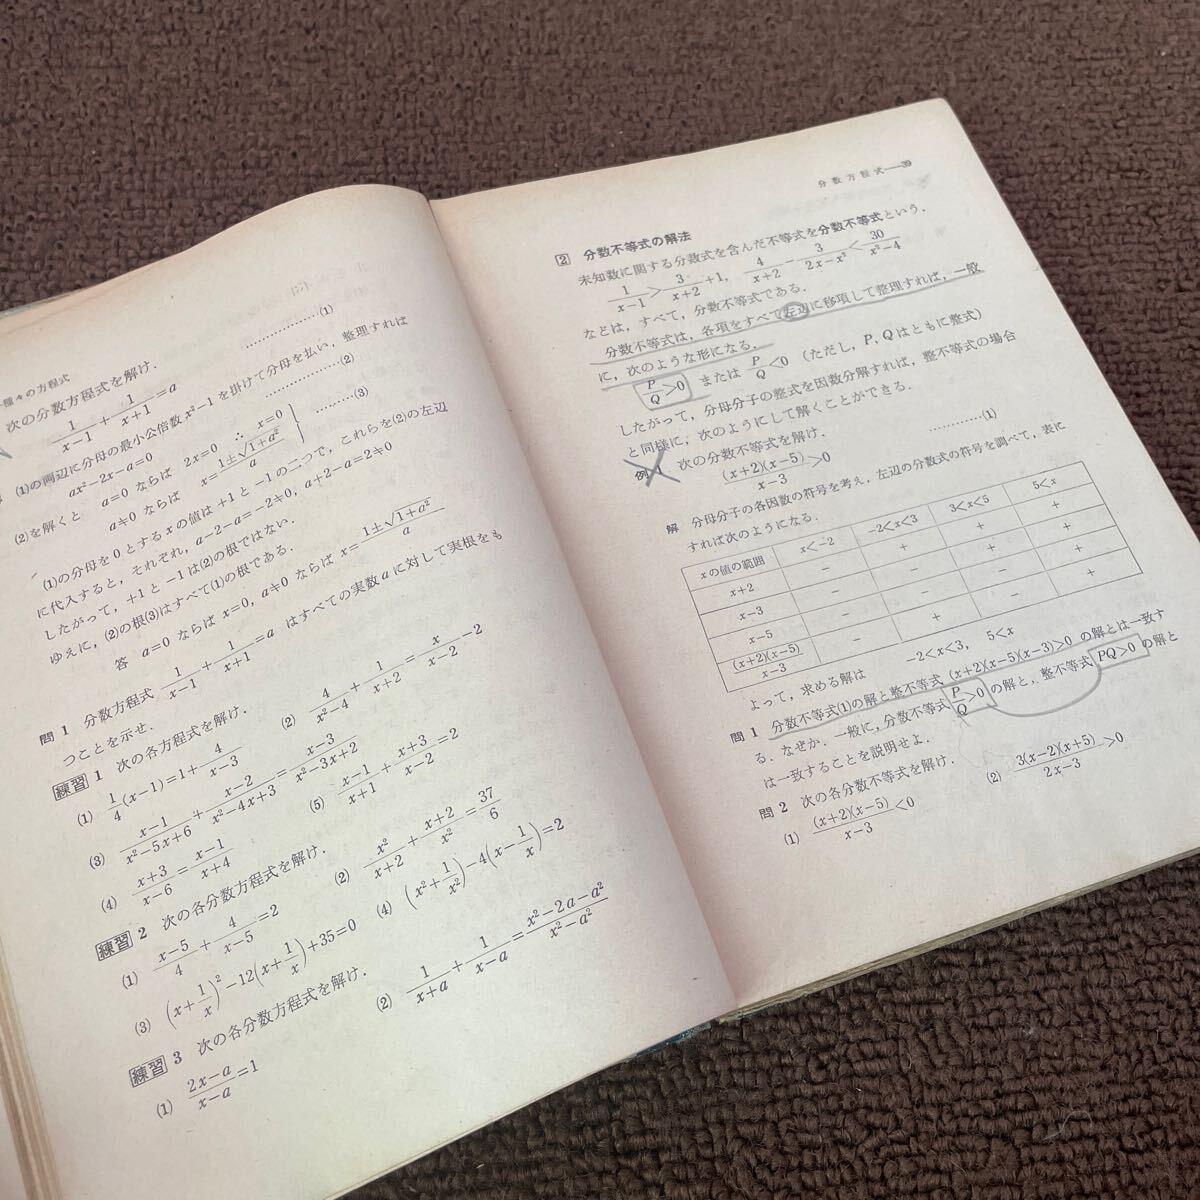 種々の方程式
次の分数方程式を解け.
1/(x−1) + 1/(x+1) = a ……………(1)
(1)の両辺に分母の最小公倍数 x²−1 を掛けて分母を払い, 整理すれば
ax²−2x−a=0 ……………(2)
(2)を解くと a=0 ならば 2x=0 ∴ x=0
a≠0 ならば x=(1±√(1+a²))/a } ………(3)
(1)の分母を0とする x の値は +1 と −1 の二つで, これらを(2)の左辺
に代入すると, それぞれ, a−2−a=−2≠0, a+2−a=2≠0
したがって, +1 と −1 は(2)の根ではない.
ゆえに, (2)の根(3)はすべて(1)の根である.
答 a=0 ならば x=0, a≠0 ならば x=(1±√(1+a²))/a
問 1 分数方程式 1/(x−1) + 1/(x+1) = a はすべての実数 a に対して実根をも
つことを示せ.
練習 1 次の各方程式を解け.
(1) 1/4(x−1)=1+4/(x−3) (2) 4/(x²−4) + 1/(x+2) = x/(x−2) −2
(3) (x−1)/(x²−5x+6) + (x−2)/(x²−4x+3) = (x−3)/(x²−3x+2)
(4) (x+3)/(x−6) = (x−1)/(x+4) (5) (x−1)/(x+1) + (x+3)/(x−2) = 2
練習 2 次の各分数方程式を解け.
(1) (x−5)/4 + 4/(x−5) = 2 (2) x²/(x+2) + (x+2)/x² = 37/6
(3) (x+1/x)²−12(x+1/x)+35=0 (4) (x²+1/x²)−4(x−1/x)=2
練習 3 次の各分数方程式を解け.
(1) (2x−a)/(x−a) = 1 (2) 1/(x+a) + 1/(x−a) = (x²−2a−a²)/(x²−a²)
分数方程式——39
2 分数不等式の解法
未知数に関する分数式を含んだ不等式を分数不等式という.
1/(x−1) > 3/(x+2) +1, 4/(x+2) − 3/(2x−x²) < 30/(x²−4)
などは, すべて, 分数不等式である.
分数不等式は, 各項をすべて左辺に移項して整理すれば, 一般
に, 次のような形になる.
P/Q>0 または P/Q<0 (ただし, P, Q はともに整式)
したがって, 分母分子の整式を因数分解すれば, 整不等式の場合
と同様に, 次のようにして解くことができる.
例 1 次の分数不等式を解け.
(x+2)(x−5)/(x−3) > 0 ……………(1)
解 分母分子の各因数の符号を考え, 左辺の分数式の符号を調べて, 表に
すれば次のようになる.
xの値の範囲 x<−2 −2<x<3 3<x<5 5<x
x+2 − + + +
x−3 − − + +
x−5 − − − +
(x+2)(x−5)/(x−3) − + − +
よって, 求める解は −2<x<3, 5<x
問 1 分数不等式(1)の解と整不等式 (x+2)(x−5)(x−3)>0 の解とは一致す
る. なぜか. 一般に, 分数不等式 P/Q>0 の解と, 整不等式 PQ>0 の解と
は一致することを説明せよ.
問 2 次の各分数不等式を解け.
(1) (x+2)(x−5)/(x−3) < 0 (2) 3(x−2)(x+5)/(2x−3) > 0